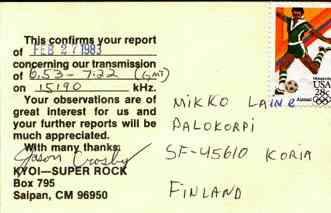 This confirms your report
of FEB 27 1983
concerning our transmission
of 6.53 - 7:22 (GMT)
on 15190 kHz.
Your observations are of
great interest for us and
your further reports will be
much appreciated.
With many thanks:
Jason Crosby
KYOI—SUPER ROCK
Box 795
Saipan, CM 96950
USA
28c
Airmail
MIKKO LAINE
PALOKORPI
SF-45610 KORIA
FINLAND